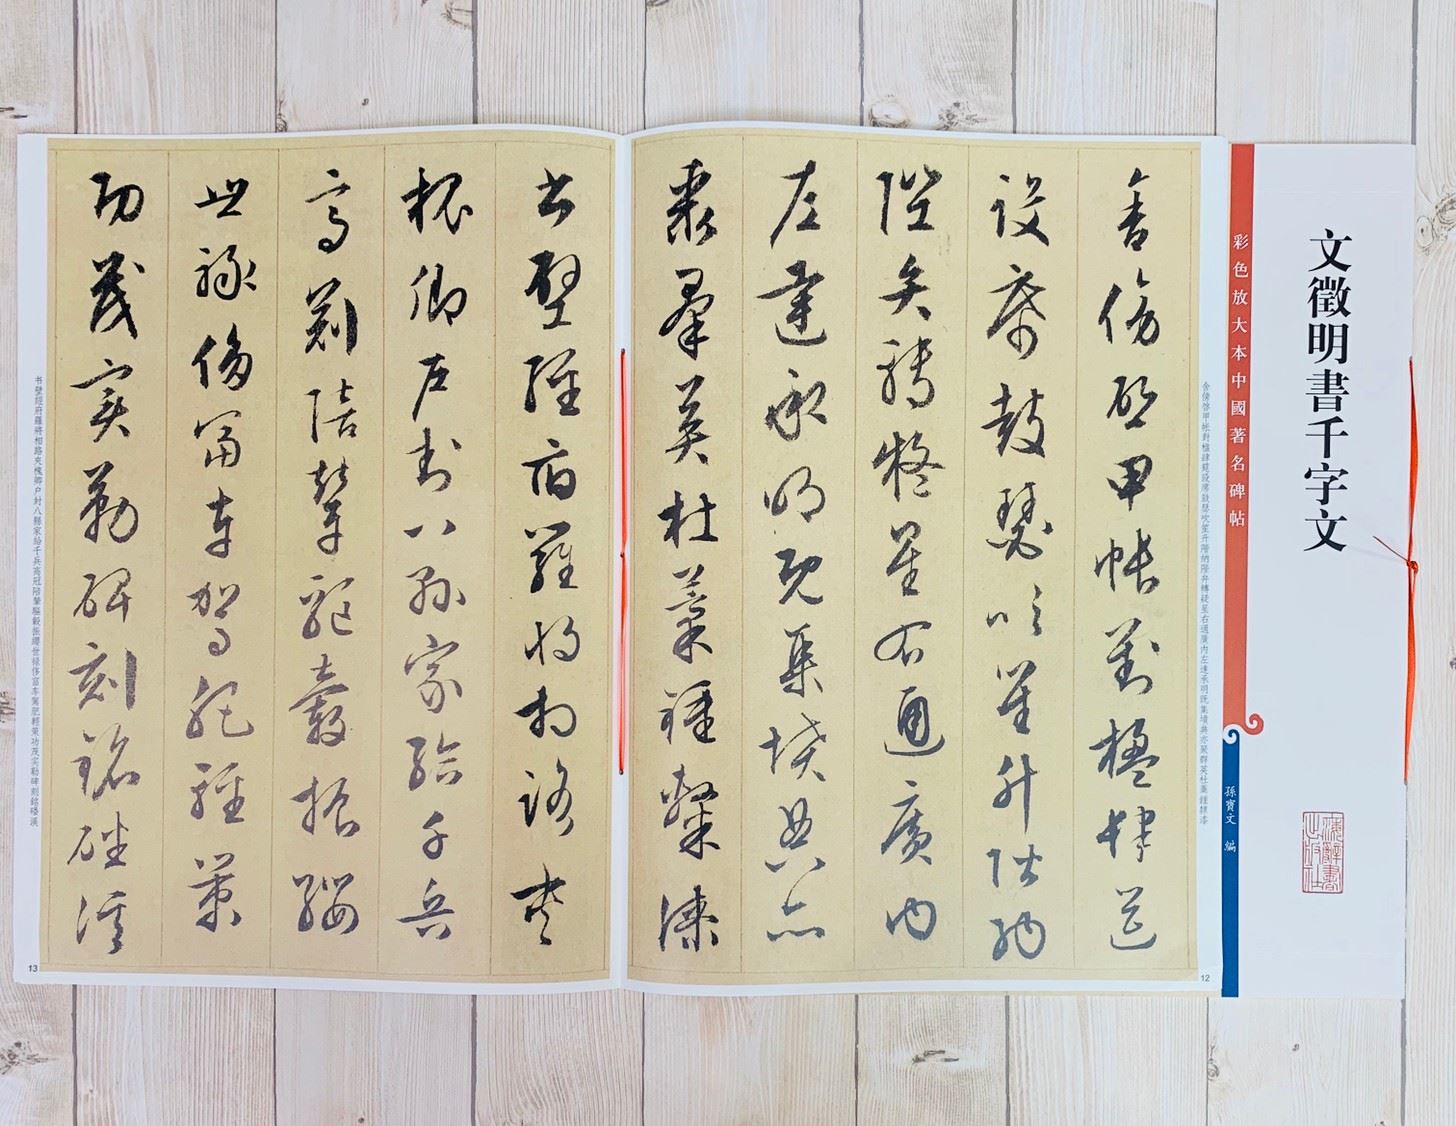 文徵明書千字文
上海辭書出版社
彩色放大本中國著名碑帖
孫寶文 編
舍傍啓甲帳對楹肆筵設席鼓瑟吹笙升階納陛弁轉疑星右通廣内左達承明既集墳典亦聚群英杜稾鍾隸漆
舍傍啓甲帳對楹肆筵
設席鼓瑟吹笙升階納
陛弁轉疑星右通廣內
左達承明既集墳典亦
聚羣英杜稾鍾隸漆
12
书壁經府羅將相路夾槐卿户封八縣家給千兵高冠陪輦驅轂振纓世禄侈富车駕肥輕策功茂实勒碑刻銘磻溪
书壁經府羅將相路夾
槐卿户封八縣家給千兵
高冠陪輦驅轂振纓
世祿侈富车駕肥輕策
功茂实勒碑刻銘磻溪
13